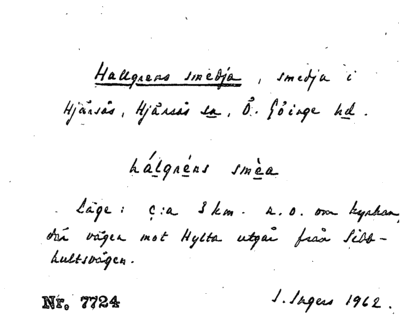 Hallgrens smedja, smedja i
Hjärsås, Hjärsås sn, Ö. Göinge hd.
hálgréns smèa
Läge: c:a 3 km. n.o. om kyrkan,
där vägen mot Hylta utgår från Sibb-
hultsvägen.
Nr. 7724
I. Ingers 1962.